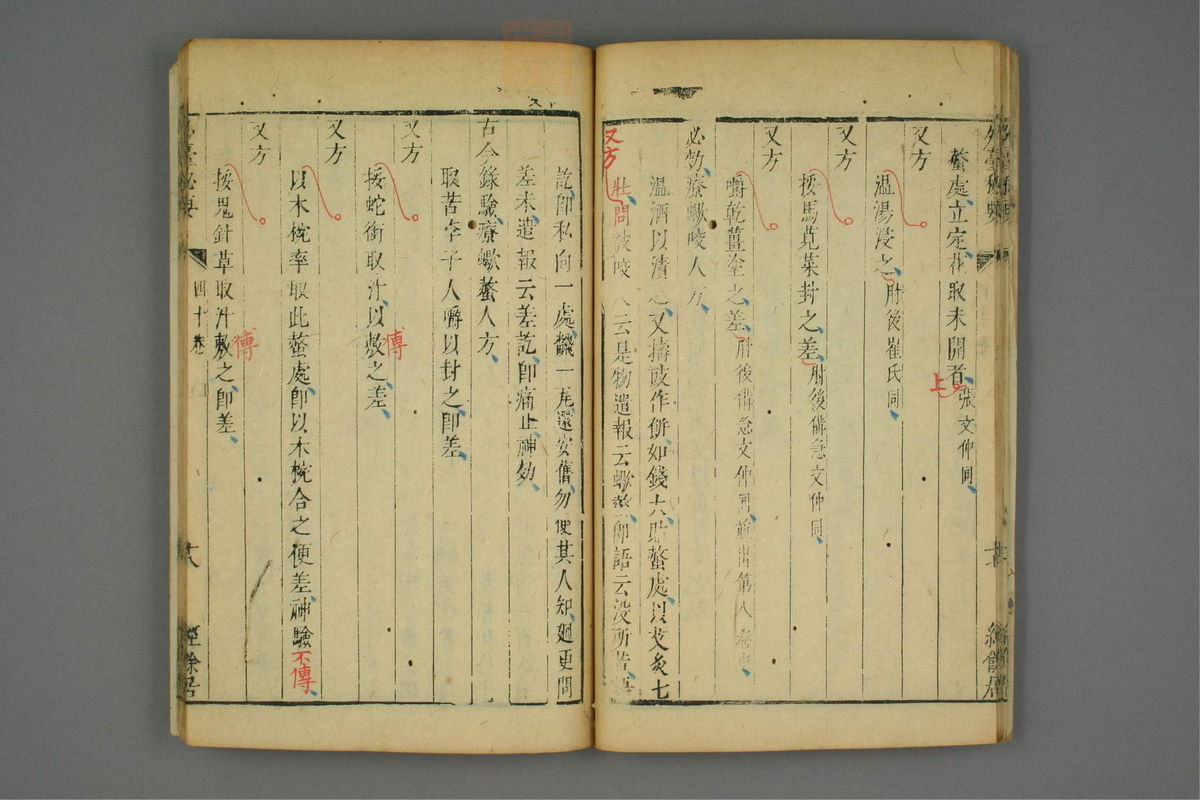 螫處立定花取未開者張文仲同
上
又方
溫湯浸之肘後崔氏同
又方
挼馬莧菜封之差肘後備急文仲同
又方
嚼乾薑塗之差肘後備急文仲同並出第八卷中
必効療蠍咬人方
溫酒以漬之又擣豉作餅如錢大貼螫處以艾灸七
又方
壯問咬人云是物遣報云蠍螫即語云沒所苦語
訖即私向一處翻一瓦還安舊勿使其人知迴更問
差未遣報云差訖即痛止神効
古今錄驗療蠍螫人方
取苦李子人嚼以封之即差
又方
挼蛇銜取汁以敷之差
傳
又方
以木椀率取此螫處即以木椀合之便差神驗
不傳
又方
挼鬼針草取汁敷之即差
傳
四十卷
經餘居